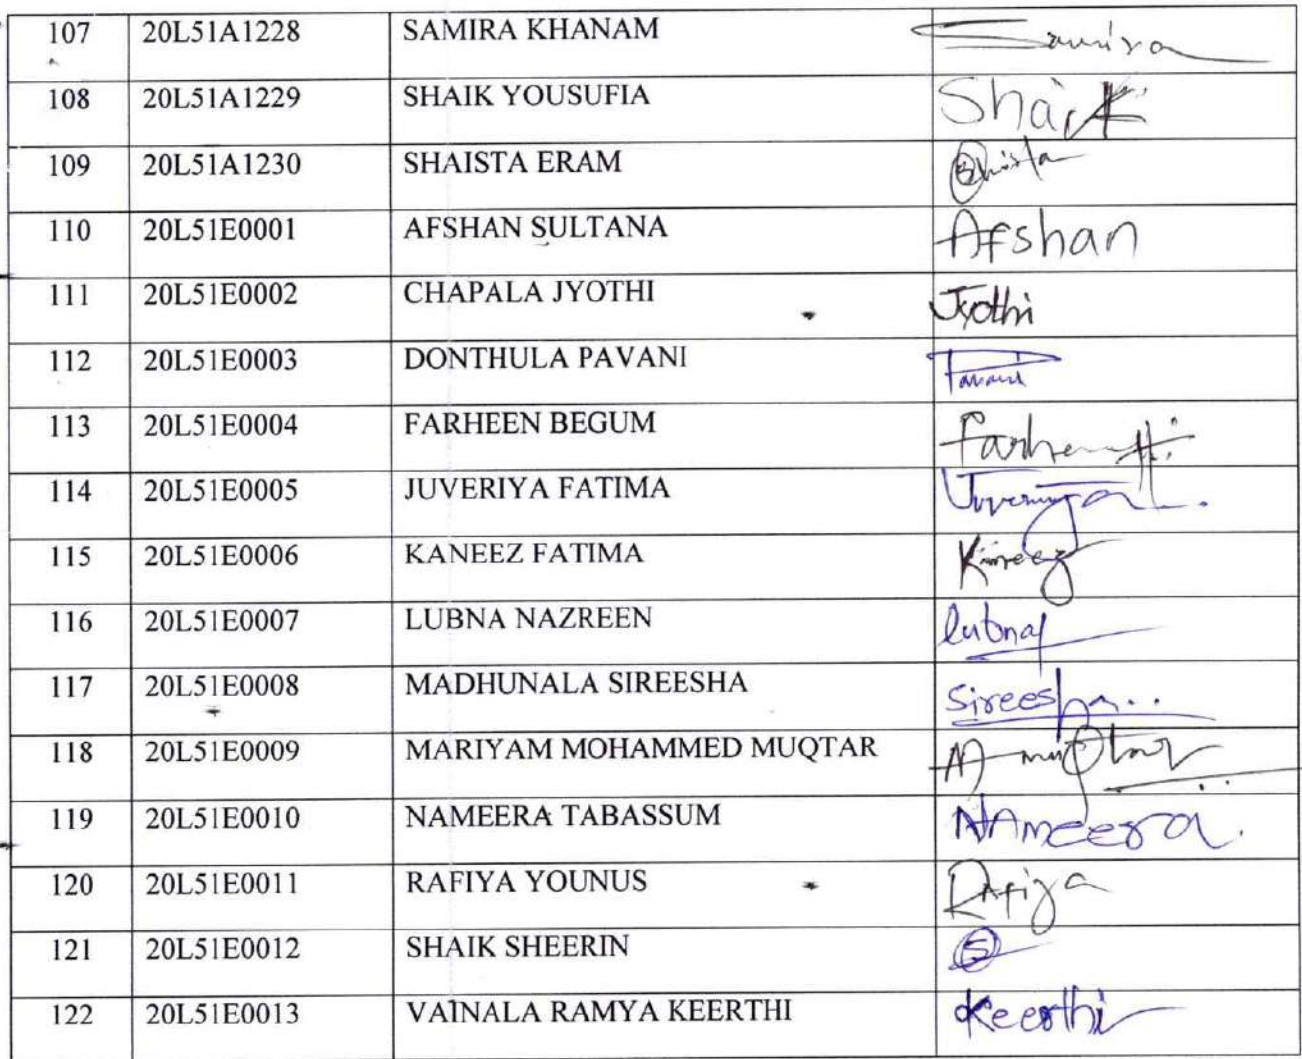 107 20L51A1228 SAMIRA KHANAM Samira
108 20L51A1229 SHAIK YOUSUFIA Shaik
109 20L51A1230 SHAISTA ERAM Shista
110 20L51E0001 AFSHAN SULTANA Afshan
111 20L51E0002 CHAPALA JYOTHI Jyothi
112 20L51E0003 DONTHULA PAVANI Pavani
113 20L51E0004 FARHEEN BEGUM
114 20L51E0005 JUVERIYA FATIMA
115 20L51E0006 KANEEZ FATIMA Kaneez
116 20L51E0007 LUBNA NAZREEN lubna
117 20L51E0008 MADHUNALA SIREESHA Sireesha..
118 20L51E0009 MARIYAM MOHAMMED MUQTAR
119 20L51E0010 NAMEERA TABASSUM NAmeera.
120 20L51E0011 RAFIYA YOUNUS Rafiya
121 20L51E0012 SHAIK SHEERIN S
122 20L51E0013 VAINALA RAMYA KEERTHI Keerthi